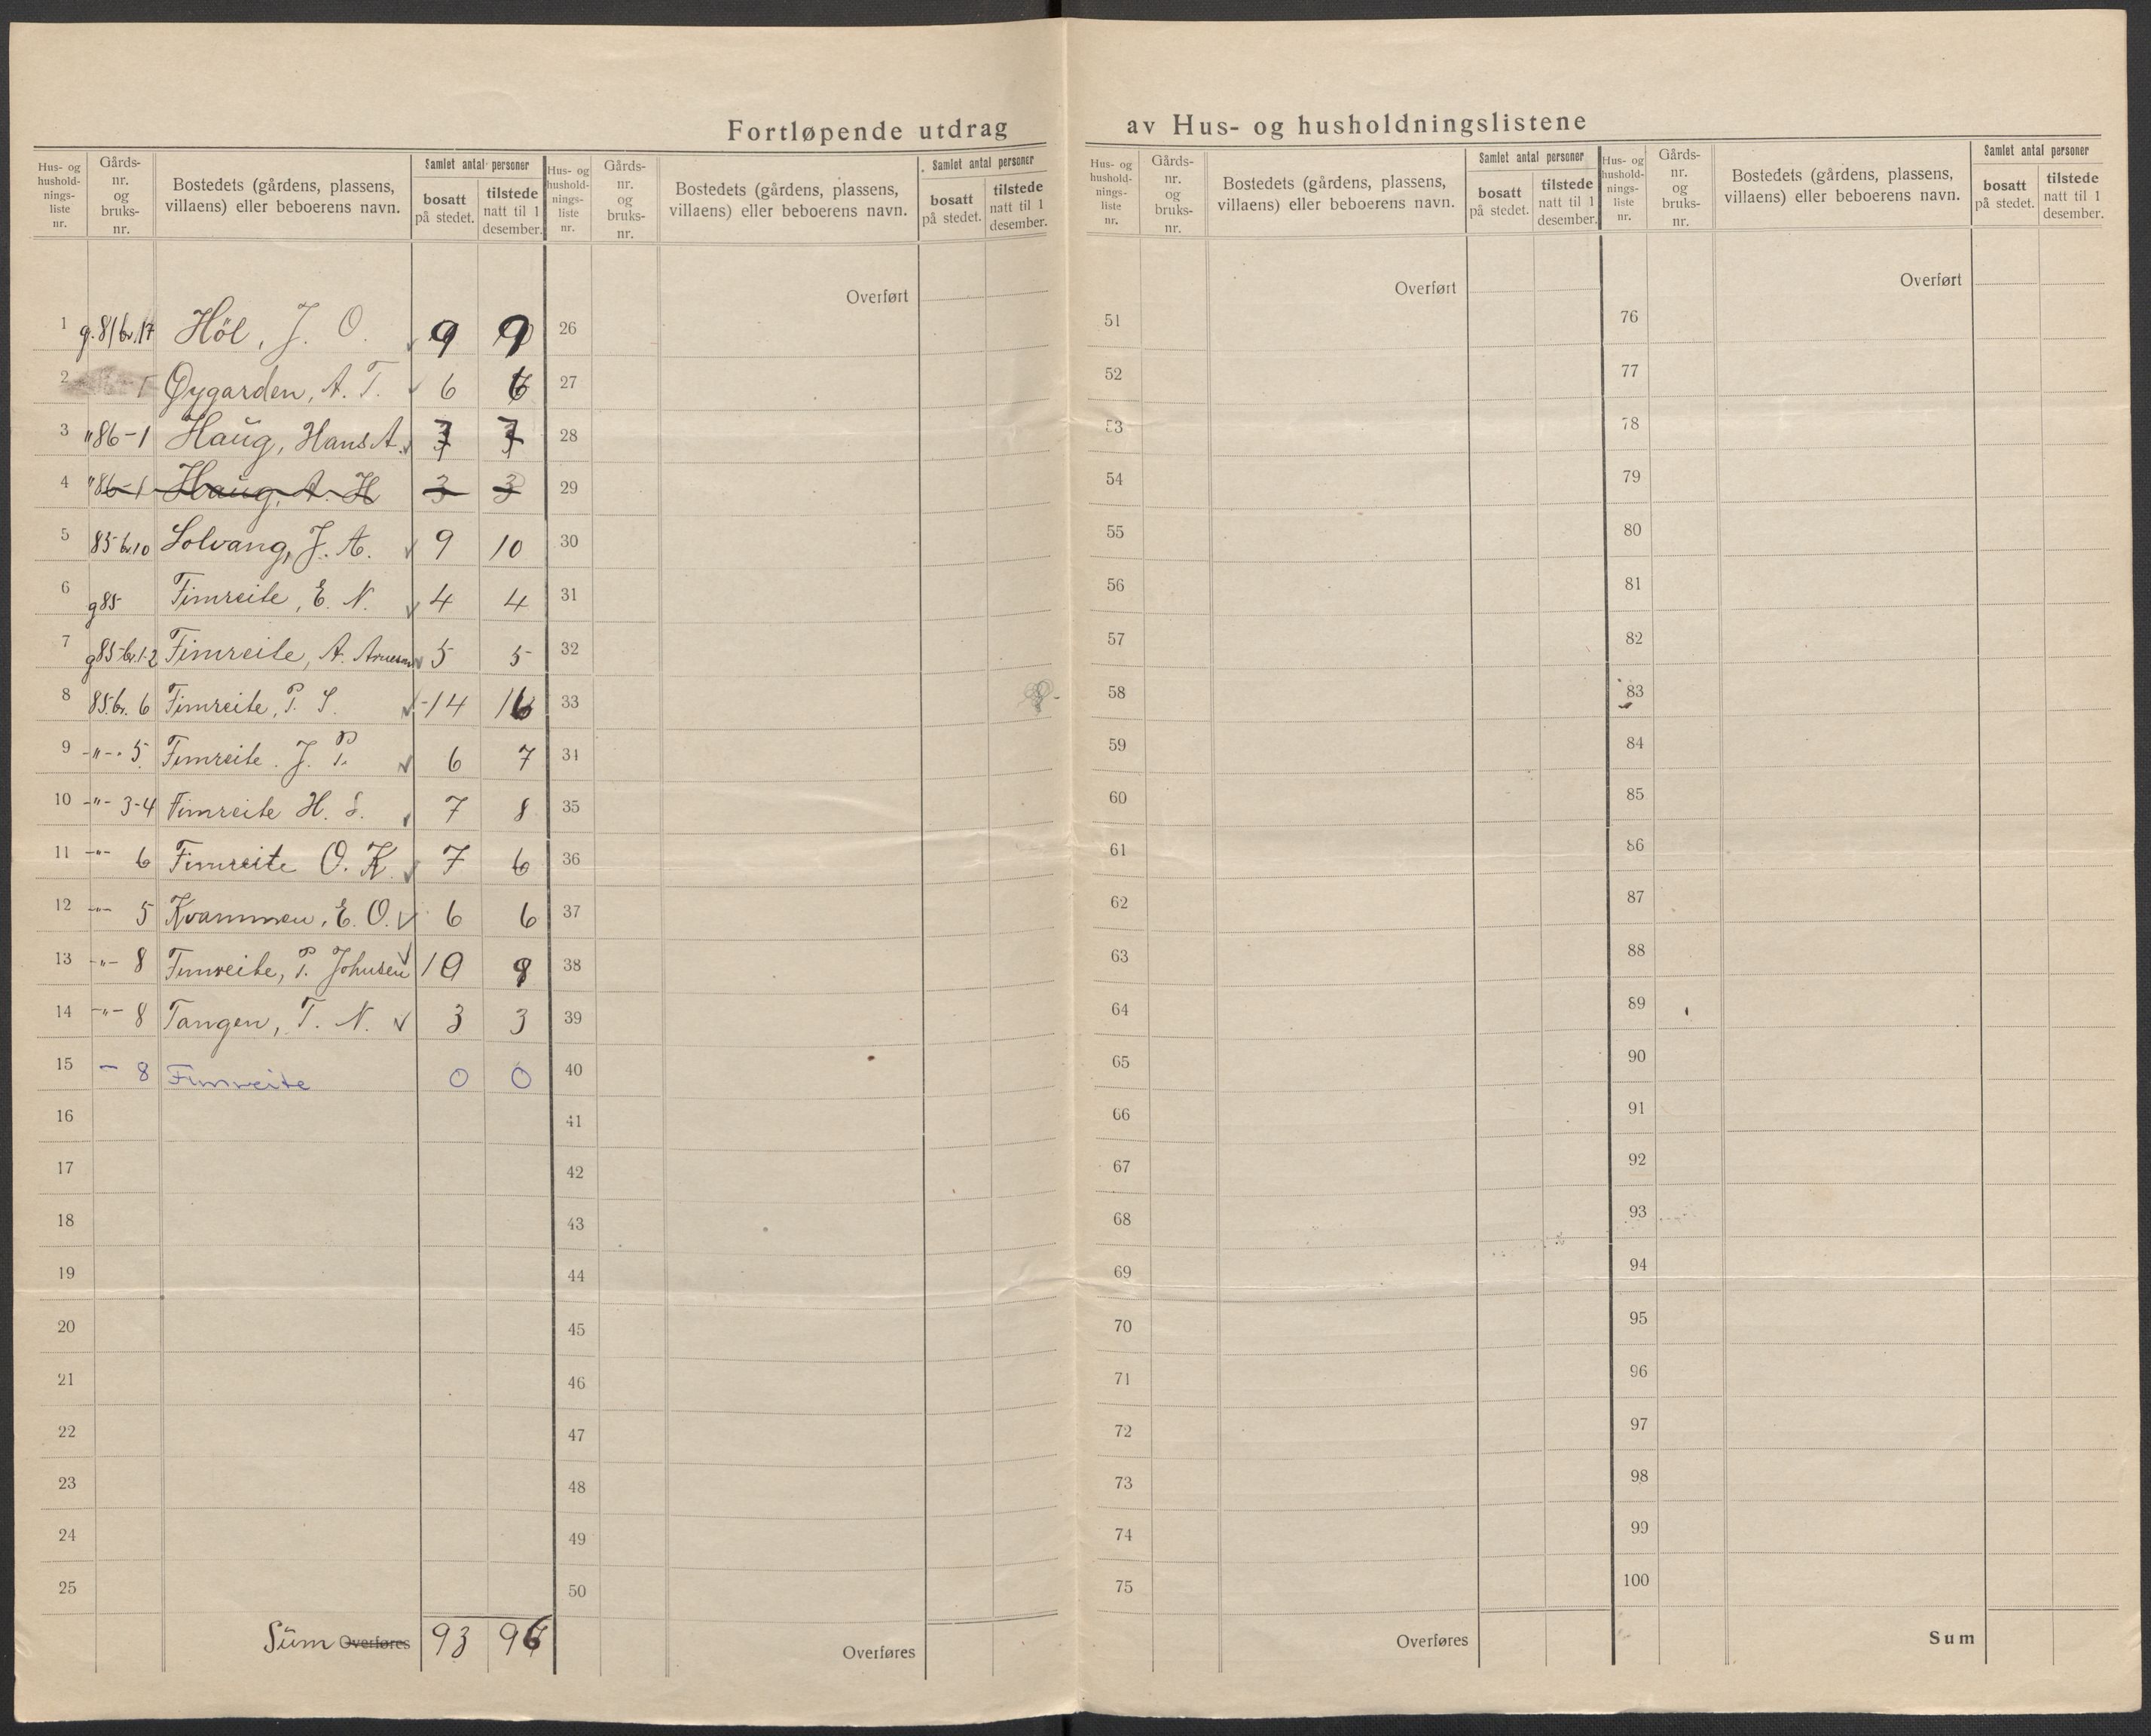 Fortløpende utdrag av Hus- og husholdningslistene
Hus- og hushold-nings-liste nr. Gårds-nr. og bruks-nr. Bostedets (gårdens, plassens, villaens) eller beboerens navn. Samlet antal personer bosatt på stedet. tilstede natt til 1 desember.
Hus- og hushold-nings-liste nr. Gårds-nr. og bruks-nr. Bostedets (gårdens, plassens, villaens) eller beboerens navn. Samlet antal personer bosatt på stedet. tilstede natt til 1 desember.
Hus- og hushold-nings-liste nr. Gårds-nr. og bruks-nr. Bostedets (gårdens, plassens, villaens) eller beboerens navn. Samlet antal personer bosatt på stedet. tilstede natt til 1 desember.
Hus- og hushold-nings-liste nr. Gårds-nr. og bruks-nr. Bostedets (gårdens, plassens, villaens) eller beboerens navn. Samlet antal personer bosatt på stedet. tilstede natt til 1 desember.
1 g.81 br.17 Höl, J. O. 9 9
2 Øygarden, A. T. 6 6
3 "86-1 Haug, Hans A. 7 7
4 "86-1 Haug, A. H 3 3
5 85 br.10 Solvang, J. A. 9 10
6 g85 Fimreite, E. N. 4 4
7 g85 br.1-2 Fimreite, A. Arnesen 5 5
8 85.br. 6 Fimreite, P. S. 14 16
9 -"- 5 Fimreite. J. P. 6 7
10 -"- 3-4 Fimreite H. S. 7 8
11 -"- 6 Fimreite O. K. 7 6
12 -"- 5 Kvammen, E. O. 6 6
13 -"- 8 Fimreite, P. Johnsen 10 9
14 -"- 8 Tangen, T. N. 3 3
15 - 8 Fimreite 0 0
16
17
18
19
20
21
22
23
24
25
Süm Overføres 93 96
Overført
26
27
28
29
30
31
32
33
34
35
36
37
38
39
40
41
42
43
44
45
46
47
48
49
50
Overføres
Overført
51
52
53
54
55
56
57
58
59
60
61
62
63
64
65
66
67
68
69
70
71
72
73
74
75
Overføres
Overført
76
77
78
79
80
81
82
83
84
85
86
87
88
89
90
91
92
93
94
95
96
97
98
99
100
Sum